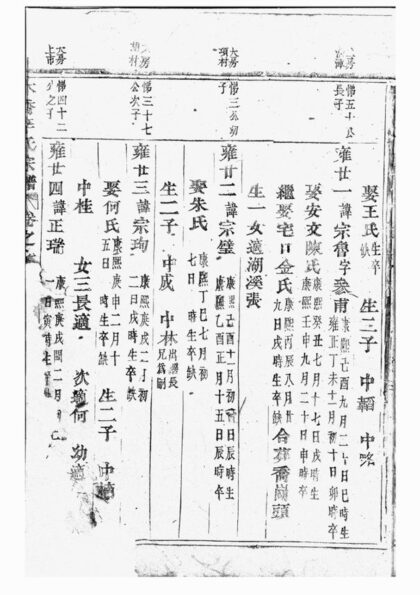 娶王氏 生卒缺 生二子 中韜 中略
大房 惕五十公長子
雍廿一 諱宗魯字參甫 康熙己酉九月二十日巳時生 雍正丁未十一月初十日卯時卒
娶安文陳氏 康熙癸丑七月十七日戌時生 康熙壬申九月二十日申時卒
繼娶宅口金氏 康熙丙辰八月廿九日戌時生卒缺 合葬喬嶺頭
生一女適湖溪張
大房 項村 惕三公初子
雍廿二 諱宗璧 康熙己酉十一月初日辰時生 康熙乙酉正月十五日辰時卒
娶朱氏 康熙丁巳七月初七日 時生卒缺
生二子 中成 中林 出繼長兄為嗣
大房 項村 惕三十七公次子
雍廿三 諱宗珣 康熙庚戌二月初二日戌時生卒缺
娶何氏 康熙庚申二月十五日 時生卒缺 生二子 中
中桂 女三長適 次適何 幼適
大房 上市 惕四十二公之子
雍廿四 諱正瑞 康熙庚戌閏二月 一日寅時生
宗譜 卷之